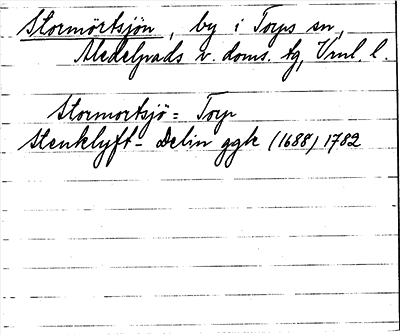 Stormörtsjön, by i Torps sn,
Medelpads v. doms. tg, Vrnl. l.
Stormortsjö = Torp
Stenklyft - Delin ggk (1688) 1782